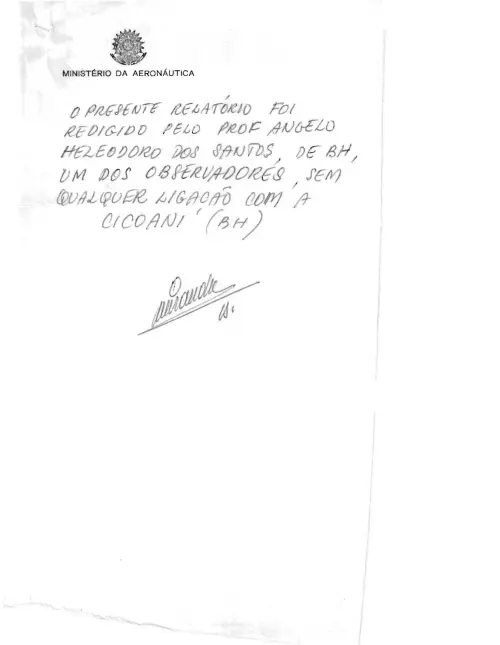 MINISTÉRIO DA AERONÁUTICA
O PRESENTE RELATÓRIO FOI
REDIGIDO PELO PROF ANGELO
HELEODORO DOS SANTOS, DE BH,
UM DOS OBSERVADORES, SEM
QUALQUER LIGAÇÃO COM A
CICOANI (BH)